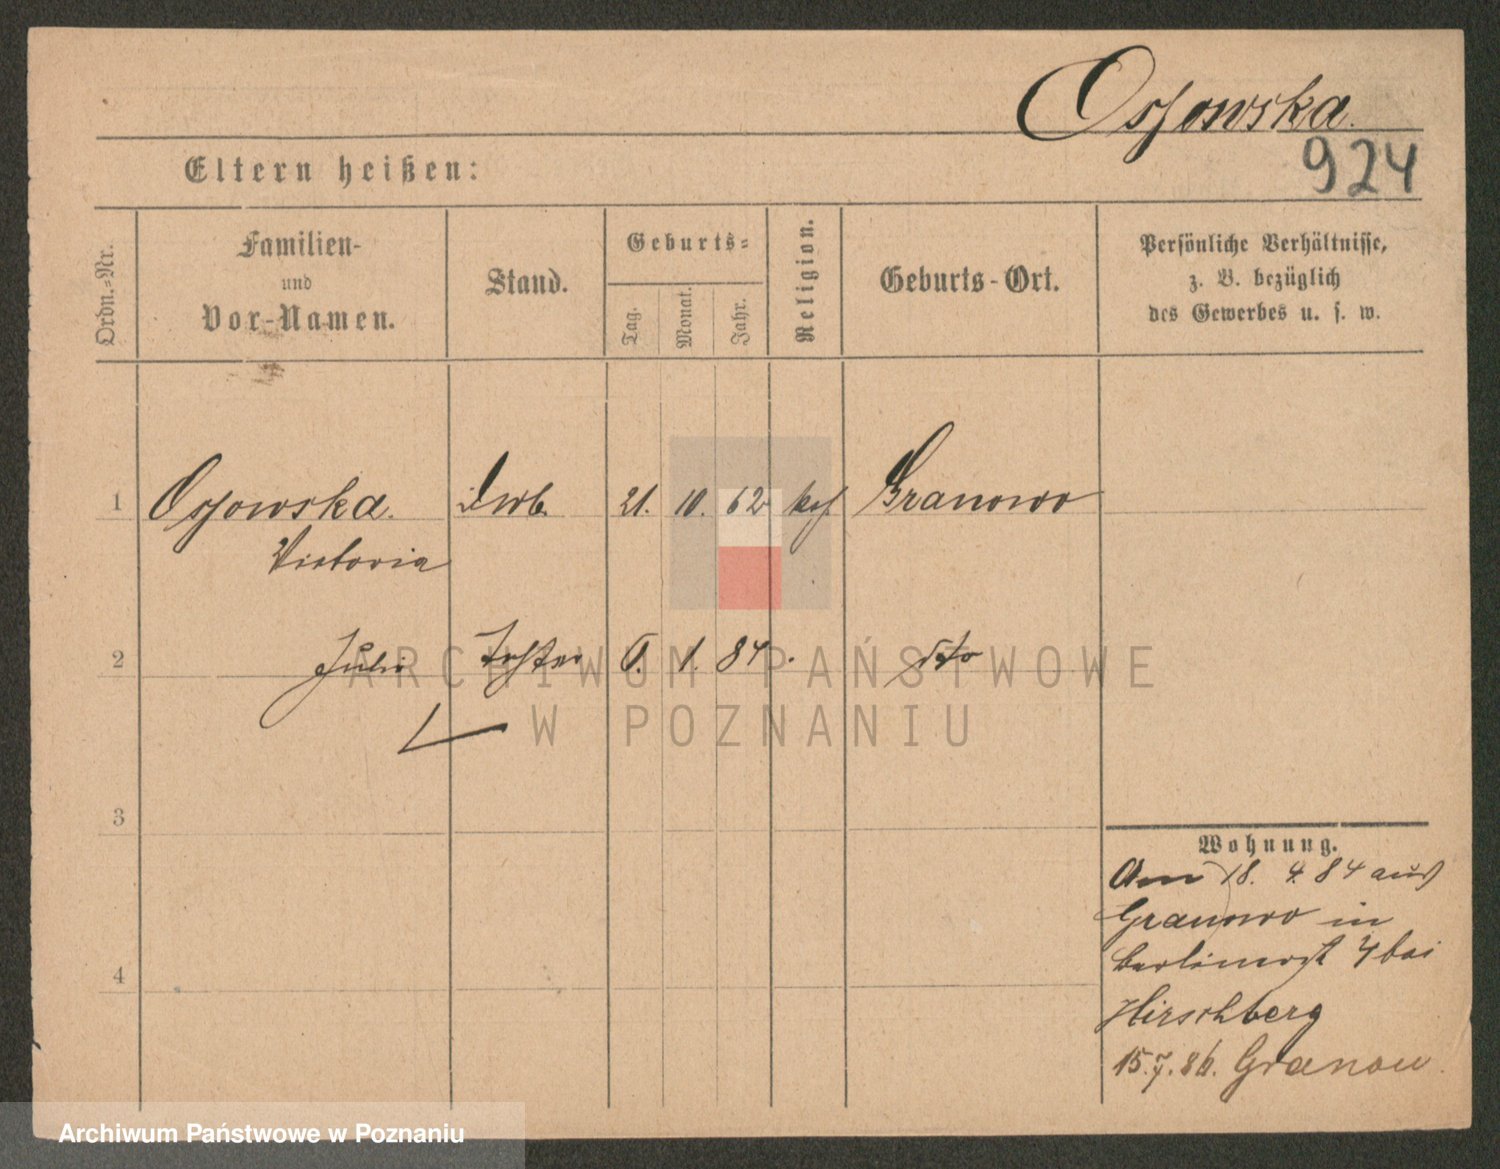 Ossowska.
924
Eltern heißen:
Ordn.-Nr.
Familien-
und
Vor-Namen.
Stand.
Geburts-
Tag.
Monat.
Jahr.
Religion.
Geburts-Ort.
Persönliche Verhältnisse,
z. B. bezüglich
des Gewerbes u. s. w.
1 Ossowska. 21. 10. 62 Granowo
Victoria
2 Tochter 1. 84 dto
3
4
Wohnung.
Am 18. 4. 84 aus
Granowo in
Berlinerst 4 bei
Hirschberg
15.7.86. Granow.
ARCHIWUM PAŃSTWOWE
W POZNANIU
Archiwum Państwowe w Poznaniu